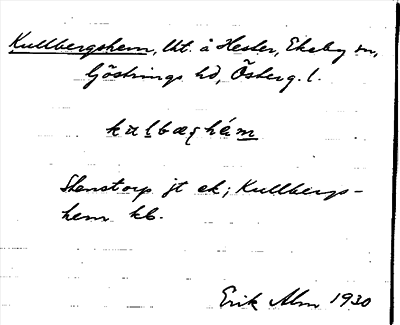 Kullbergshem, Ut. å Hester, Ekeby sn,
Göstrings hd, Österg. l.
kulbæʂhém
Stenstorp jt ek; Kullbergs-
hem kb.
Erik Alm 1930